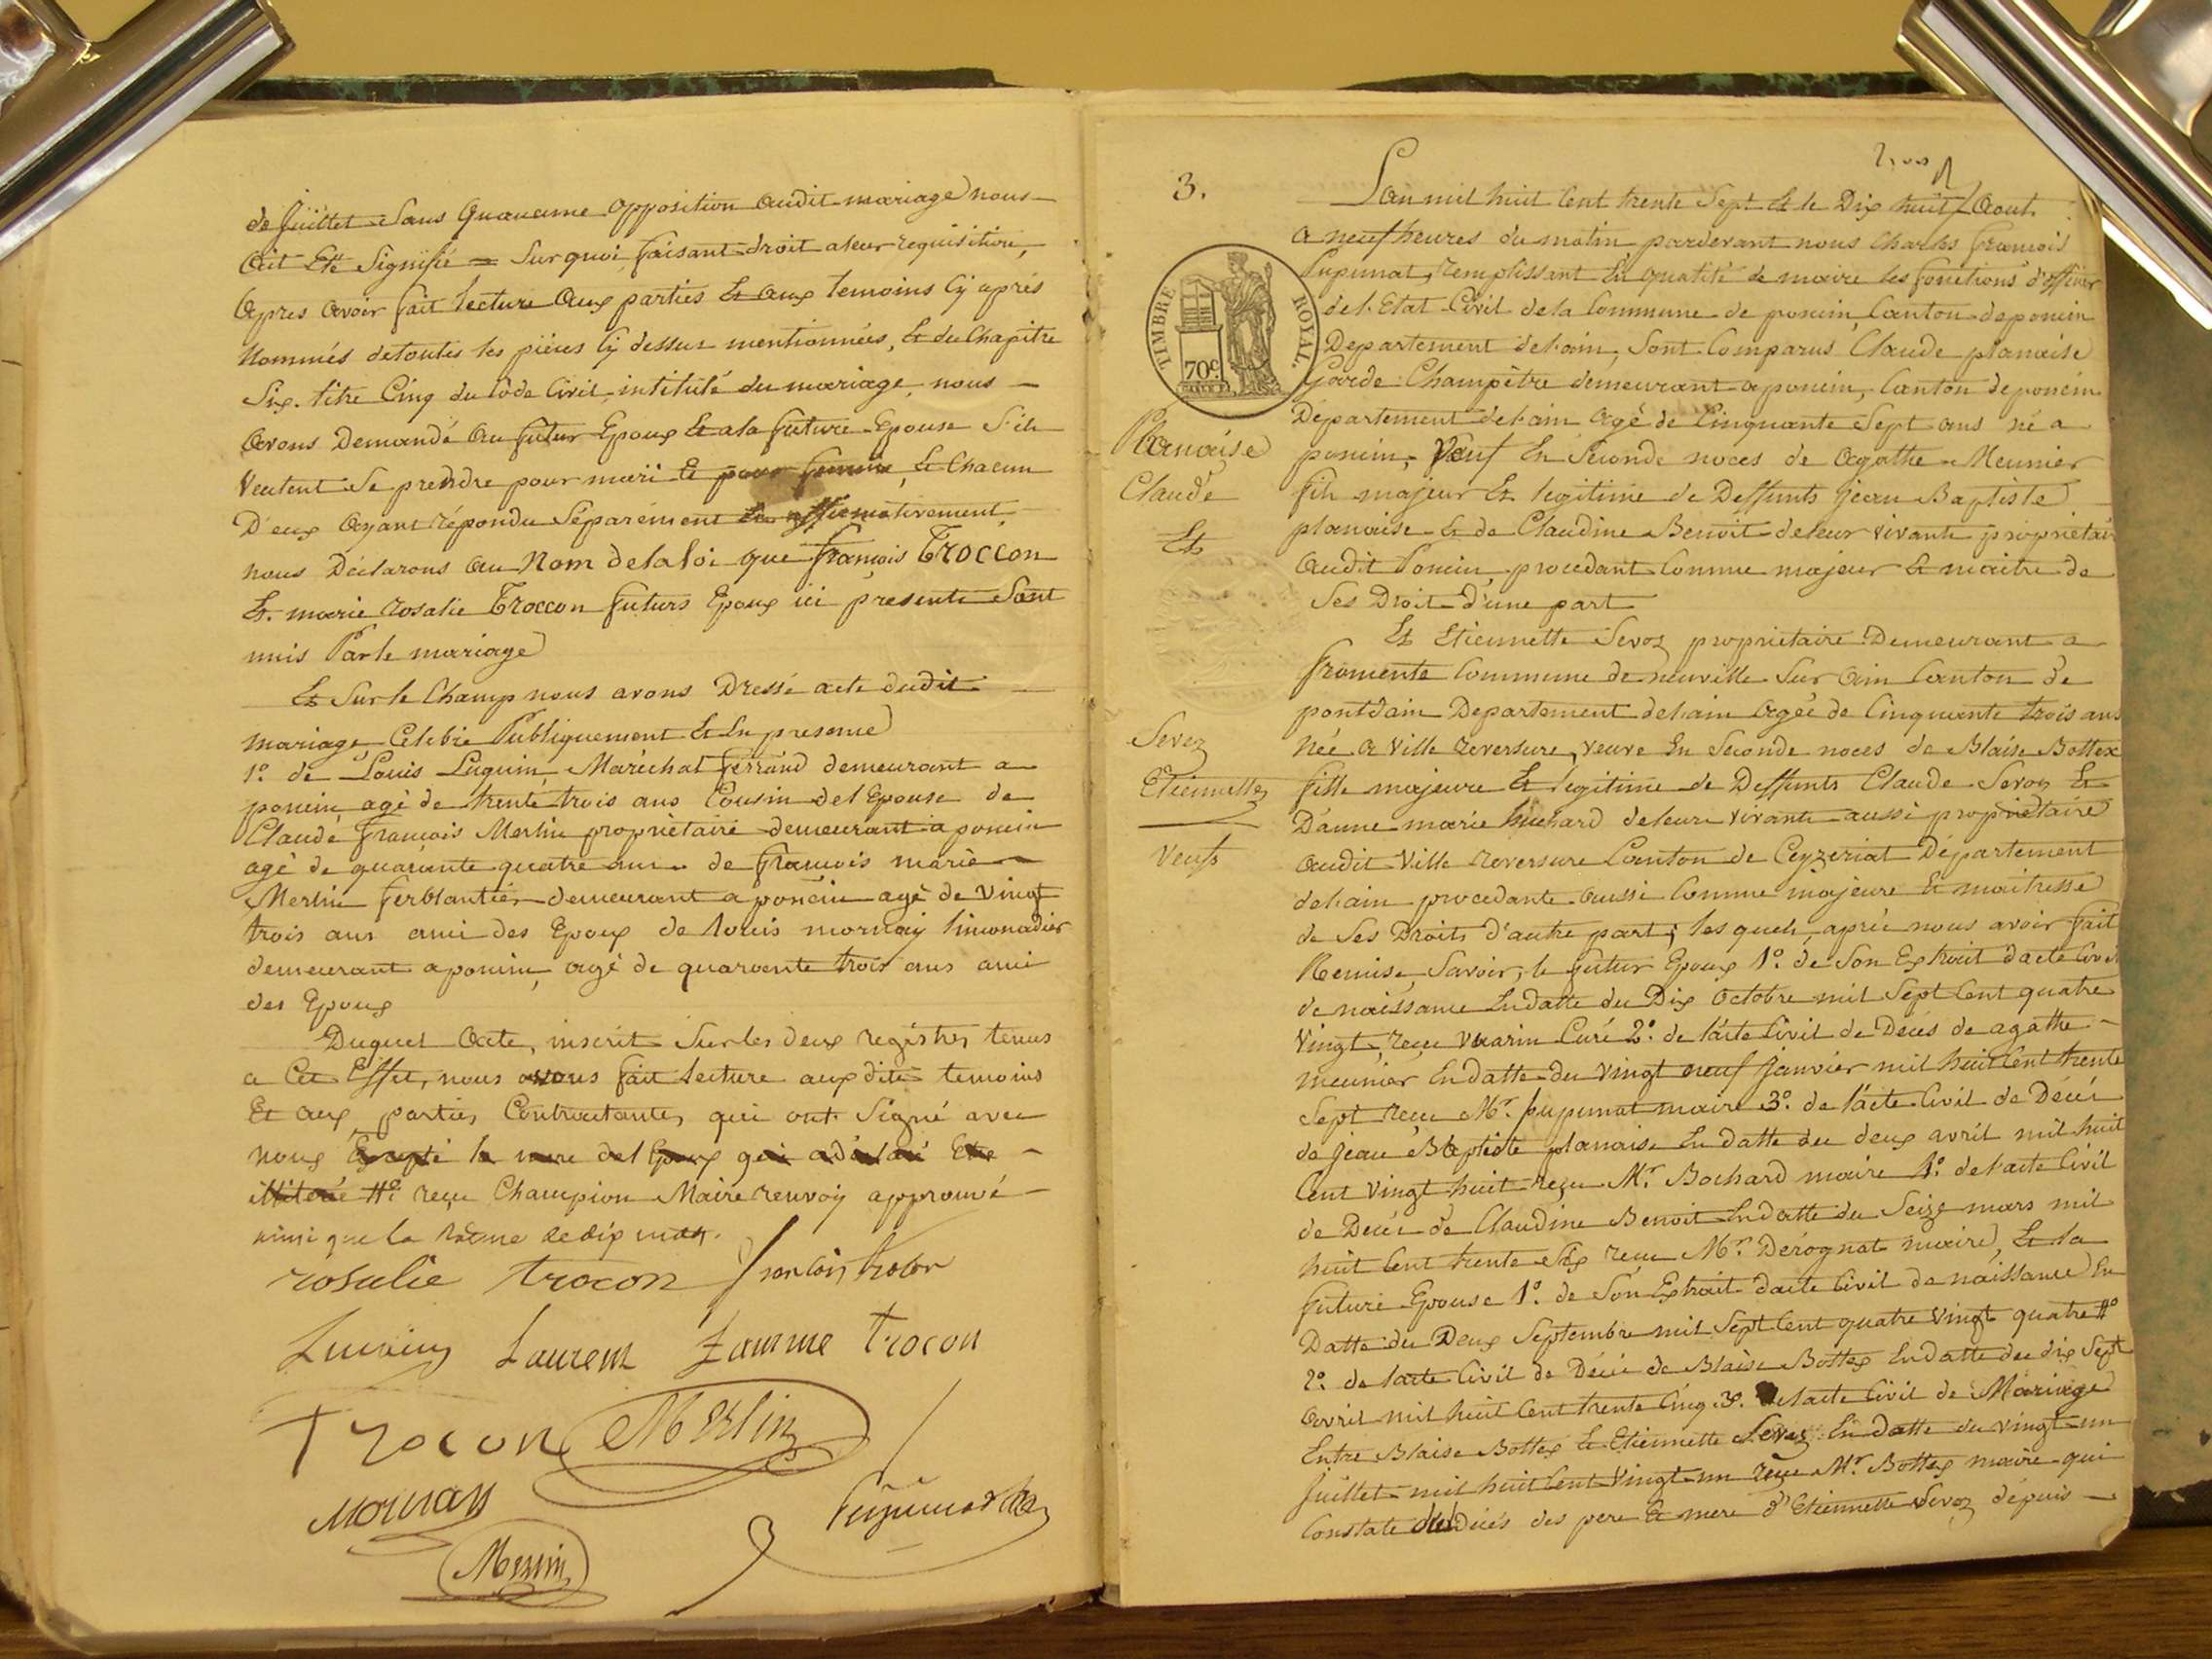 de juillet Sans quaucune opposition audit mariage nous
ait Eté Signifié = Sur quoi, faisant droit a leur requisition,
Apres avoir fait lecture aux parties Et aux temoins Cy après
Nommés de toutes les pièces Cy dessus mentionnées, Et du Chapitre
Six. titre Cinq du Côde Civil, intitulé du mariage, nous
avons Demandé Au futur Epoux Et a la future Epouse S'ils
veulent Se prendre pour mari Et pour femme, Et Chacun
D'eux Ayant répondu Séparément Et affirmativement,
nous Déclarons Au Nom de la loi que françois Troccon
Et marie rosalie Troccon futurs Epoux ici présents Sont
unis Par le mariage
Et Sur le Champ nous avons Dressé acte dudit
mariage Célébré Publiquement Et En presence
1º. de Louis Luguin, Maréchal ferrand demeurant a
poncin agé de trente trois ans Cousin de l'Epouse de
Claude françois Merlin propriètaire demeurant a poncin
agé de quarante quatre ans de françois marie
Merlin ferblantier demeurant a poncin agé de vingt
trois ans ami des Epoux de louis mornay limonadier
demeurant a poncin, agé de quarante trois ans ami
des Epoux
Duquel Acte, inscrit Sur les deux registres tenus
a Cet Effet, nous avons fait lecture aux dits temoins
Et aux parties Contractantes qui ont Signé avec
nous Excepté la mere de l'Epoux qui a déclaré Etre
illiterée #º. reçu Champion Maire renvoy approuvé
ainsi que la rature de dix mots.
rosalie trocon francois trocon
Luguin Laurent femme trocon
Trocon Merlin
Mornay
Merlin
3.
TIMBRE ROYAL.
70c.
Lan mil huit Cent trente Sept Et le Dix huit Aout
a neuf heures du matin pardevant nous Charles françois
Pupunat, remplissant En qualité de maire les fonctions d'officier
de l'Etat Civil de la Commune de poncin, Canton de poncin
Departement de l'ain, Sont Comparus Claude planaise
Garde Champêtre demeurant a poncin, Canton de poncin
Département de l'ain agé de Cinquante Sept ans né a
poncin, Veuf En Seconde noces de Agathe Meunier
fils majeur Et legitime de Deffunts jean Baptiste
planaise & de Claudine Benoit de leur vivants propriétair
audit Poncin, procedant Comme majeur Et maitre de
Ses Droits d'une part
Planaise
Claude
Et
Sevoz
Etiennette
Veufs
Et Etiennette Sevoz propriétaire Demeurant a
fromente Commune de neuville Sur Ain Canton de
pontdain Departement de l'ain agée de Cinquante trois ans
Née a Ville reversure, veuve En Seconde noces de Blaise Bottex
fille majeure Et legitime de Deffunts Claude Sevoz Et
D'anne marie huchard de leurs vivants aussi propriétaire
audit Ville reversure Canton de Ceyzeriat Département
de l'ain procedante aussi Comme majeure Et maitresse
de Ses Droits d'autre part; les quels, après nous avoir fait
Remise, Savoir, le futur Epoux 1º. de Son Extrait dacte Civil
de naissance En datte du Dix Octobre mil Sept Cent quatre
Vingt, reçu Vuarin Curé 2º. de l'acte Civil de Décés de agathe
meunier En datte du Vingt neuf janvier mil huit Cent trente
Sept reçu Mr. pupunat maire 3º. de l'acte Civil de Décés
de jean Baptiste planaise En datte du deux avril mil huit
Cent vingt huit reçu Mr. Bochard maire 4º. de l'acte Civil
de Décés de Claudine Benoit En datte du Seize mars mil
huit Cent trente Six reçu Mr. Dérognat maire, Et la
future Epouse 1º. de Son Extrait d'acte Civil de naissance En
Datte du Deux Septembre mil Sept Cent quatre Vingt quatre #º
2º. de l'acte Civil de Décés de Blaise Bottex En datte du dix Sept
avril mil huit Cent trente Cinq. 3º. de l'acte Civil de Mariage
Entre Blaise Bottex Et Etiennette Sevoz En datte du vingt un
juillet mil huit Cent Vingt un reçu Mr. Bottex maire qui
Constate le Décés des pere Et mere d'Etiennette Sevoz depuis